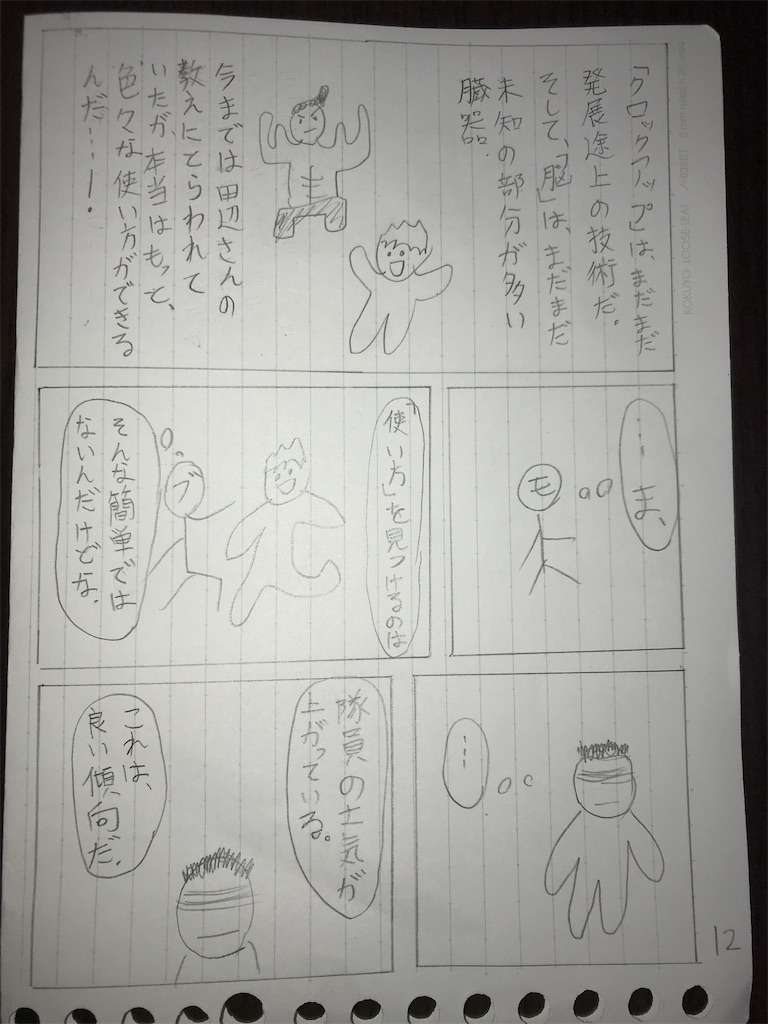 「クロックアップ」は、まだまだ
発展途上の技術だ。
そして、「脳」は、まだまだ
未知の部分が多い
臓器。
今までは田辺さんの
教えにとらわれて
いたが、本当はもって、
色々な使い方ができる
んだ…！
…ま、
モ
「使い方」を見つけるのは
ブ
そんな簡単では
ないんだけどな。
…
隊員の士気が
上がっている。
これは、
良い傾向だ。
12
KOKUYO LOOSE-LEAF